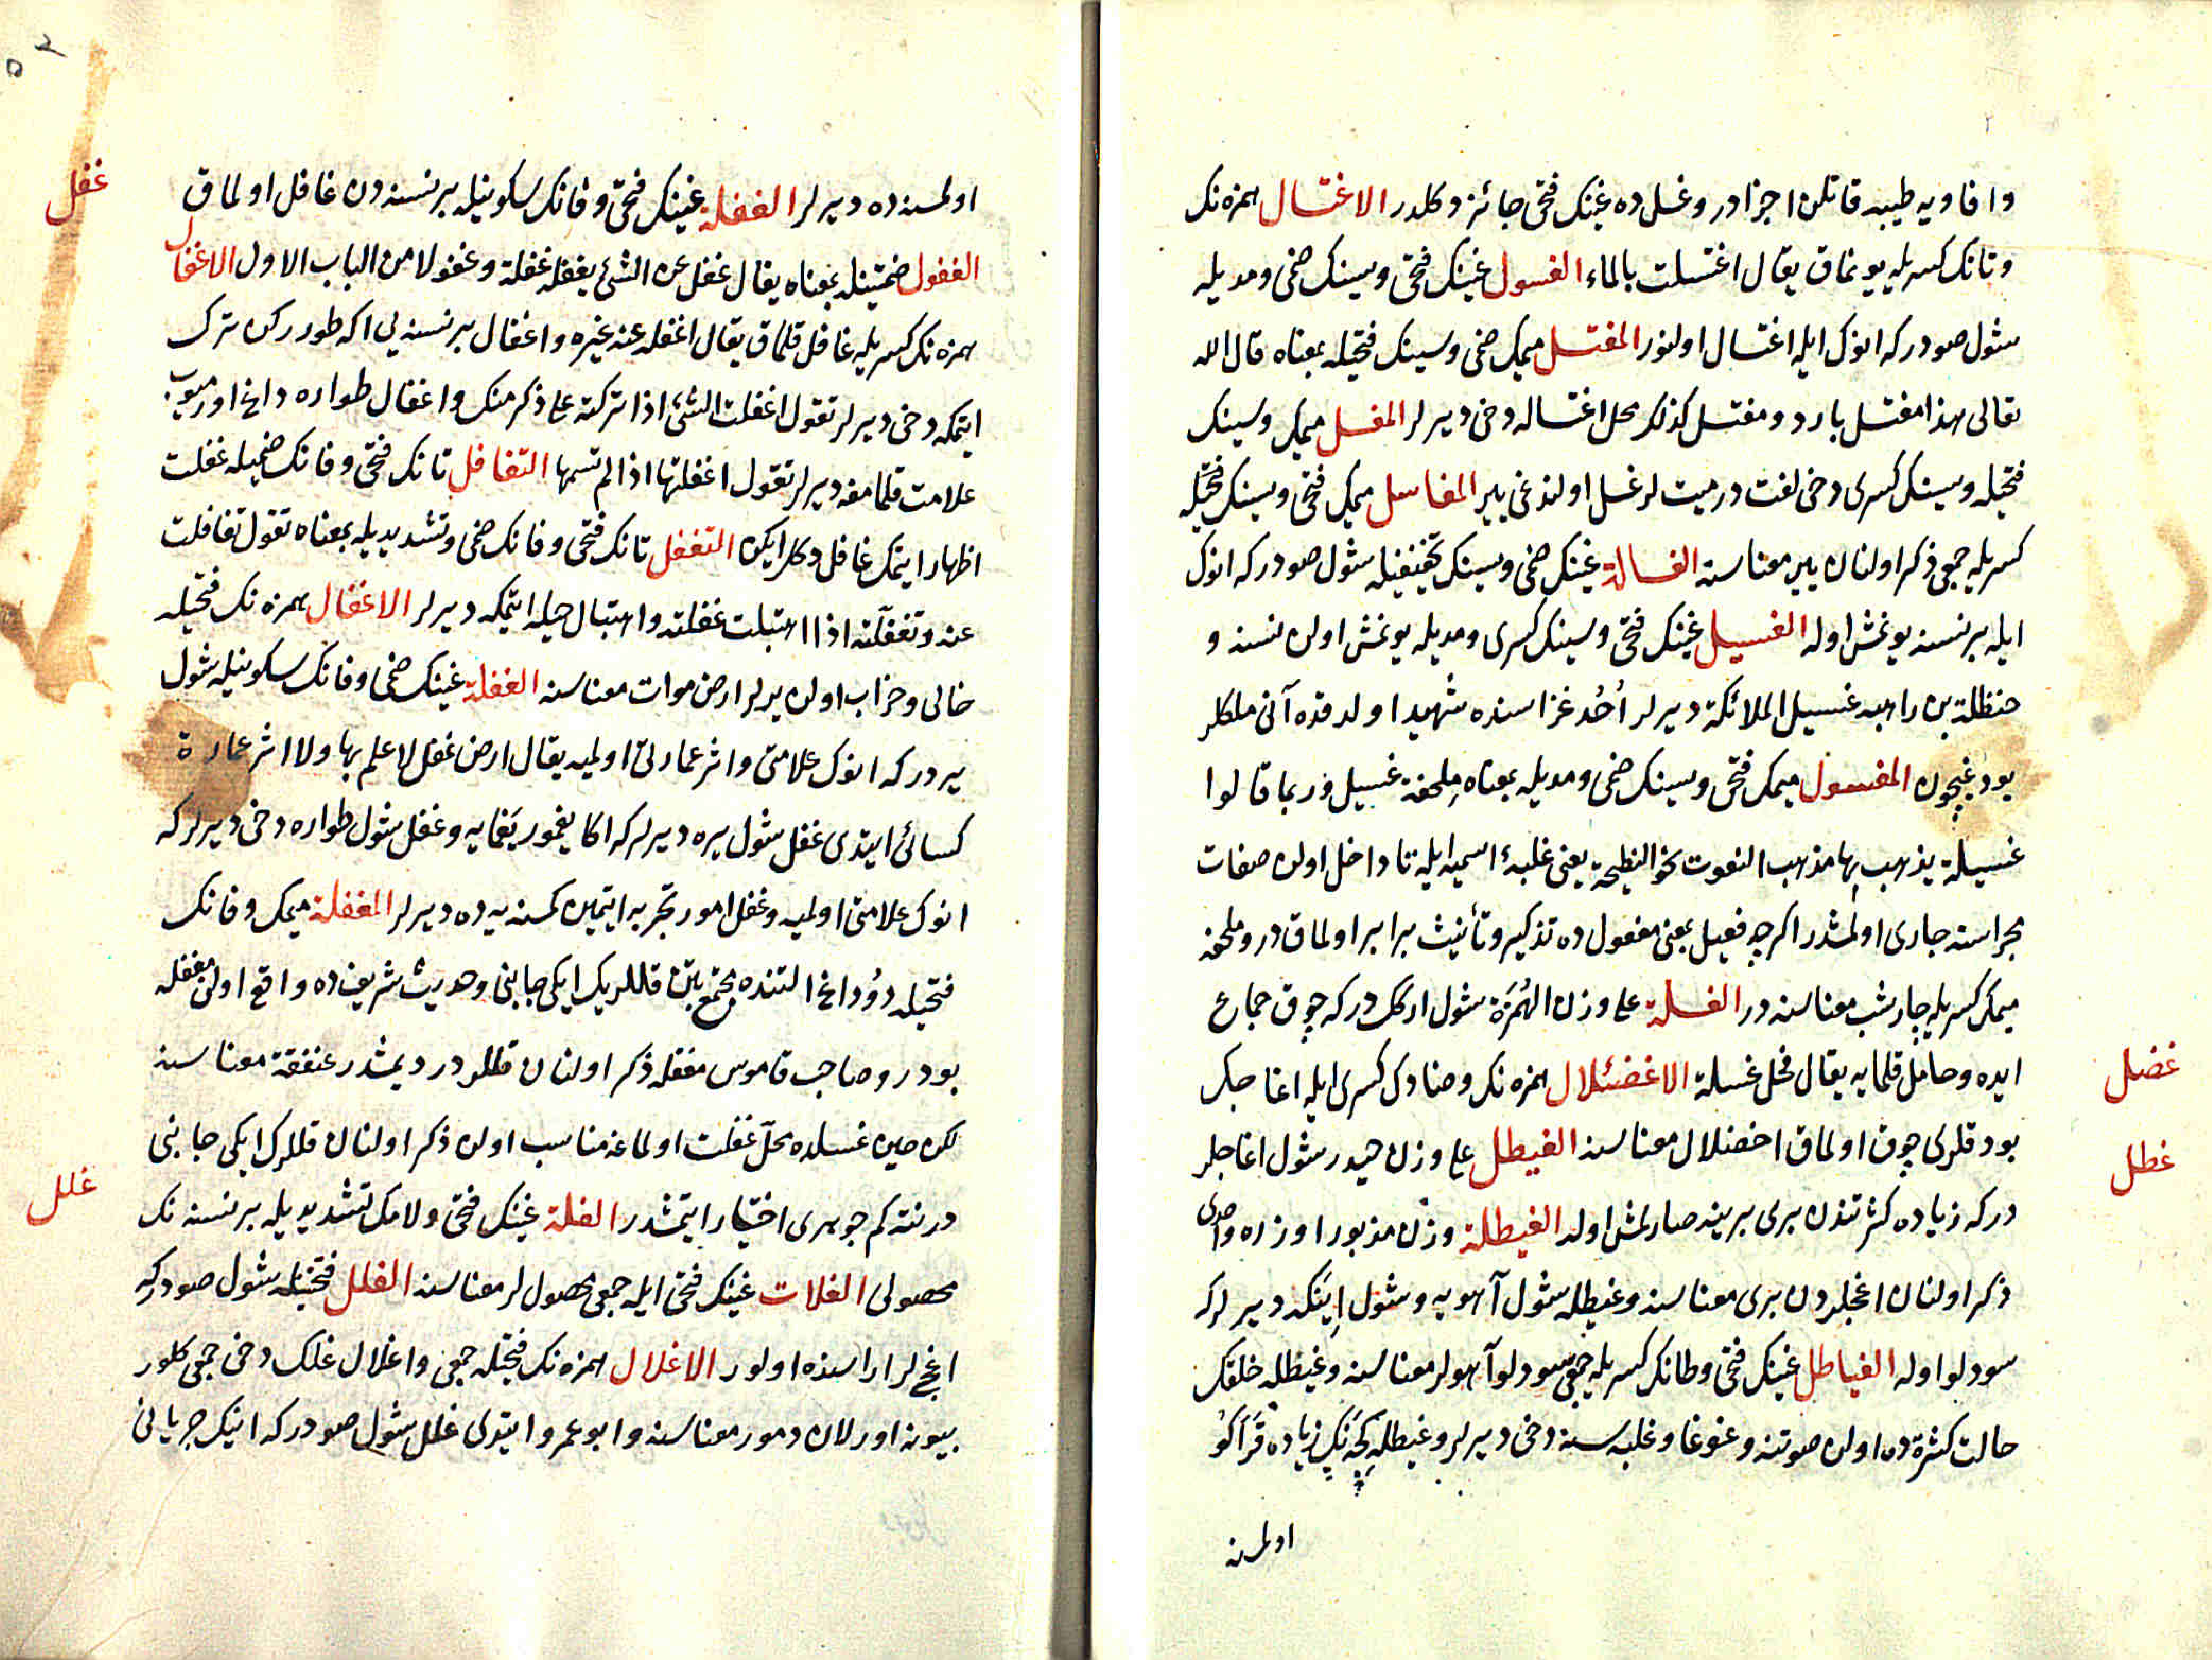 وافاويه طيبه قاتلن اجزادر وغسل ده غينك فتحى جائز دكلدر الاغتسال همزه نك
وتانك كسريله يونماق يقال اغتسلت بالماء الغسول غينك فتحى وسينك ضمى ومديله
شول صودر كه انوك ايله اغتسال اولنور المغتسل ميمك ضمى وسينك فتحيله بمعناه قال الله
تعالى هذا مغتسل بارد ومغتسل كذلك محل اغتساله دخى ديرلر المغسل ميمك وسينك
فتحيله وسينك كسرى دخى لغت در ميت لر غسل اولندغى يير المغاسل ميمك فتحى وسينك
كسريله جمعى ذكر اولنان يير معناسنه الغسالة غينك ضمى وسينك تخفيفيله شول صودر كه انوك
ايله بر نسنه يونمش اوله الغسيل غينك فتحى وسينك كسرى ومديله يونمش اولن نسنه و
حنظلة بن راهبه غسيل الملائكة ديرلر أُحُد غزاسنده شهيد اولدقده آنى ملكلر
يودغيچون المغسول ميمك فتحى وسينك ضمى ومديله بمعناه مِلحفة غسيل وربما قالوا
غسيلة يذهب بها مذهب النعوت نحو النطيحة يعنى غلبهٔ اسميه ايله تا داخل اولن صفات
مجراسنه جارى اولمشدر اكرچه فعيل بمعنى مفعول ده تذكير وتأنيث برابر اولماق در وملحفه
ميمك كسريله چارشب معناسنه در الغسلة على وزن الهُمَزَة شول اركك در كه چوق جماع
ايده وحامل قلمايه يقال فحل غسلة الاغضئلال همزه نك وضادك كسرى ايله اغاجك
بودقلرى چوق اولماق اخضلال معناسنه الغيطل على وزن حيدر شول اغاجلر
دركه زياده كثرتندن برى برينه صارلمش اوله الغيطلة وزن مزبور اوزره واحدى
ذكر اولنان اغجلردن برى معناسنه وغيطله شول آهويه وشول اينكه ديرلر كه
سودلو اوله الغياطل غينك فتحى وطانك كسريله جمعى سودلو آهولر معناسنه وغيطله خلقك
حالت كثرة ده اولن صوتنه وغوغا وغلبه سنه دخى ديرلر وغيطله كجه نك زياده قراكو
اولمسنه
غضل
غطل
اولمسنه ده ديرلر الغفلة غينك فتحى وفانك سكونيله بر نسنه دن غافل اولماق
الغفول ضمتينله بمعناه يقال غفل عن الشئ يغفل غفلة وغفولا من الباب الاول الاغفال
همزه نك كسريله غافل قلماق يقال اغفله عنه غيره واغفال بر نسنه يى اكه طورركن ترك
ايتمكه دخى ديرلر تقول اغفلت الشئ اذا تركته على ذكر منك واغفال طواره داغ اورميوب
علامت قلمامغه ديرلر تقول اغفلتها اذا لم تسمها التغافل تانك فتحى وفانك ضميله غفلت
اظهار ايتمك غافل دكل ايكن التغفل تانك فتحى وفانك ضمى وتشديديله بمعناه تقول تغافلت
عنه وتغفلته اذا اهتبلت غفلته واهتبال حيله ايتمكه ديرلر الاغفال همزه نك فتحيله
خالى وخراب اولن يرلر ارض موات معناسنه الغفلة غينك ضمى وفانك سكونيله شول
يردر كه انوك علامتى واثر عمارتى اولميه يقال ارض غفل لا علم بها ولا اثر عمارة
كسائى ايتدى غفل شول يره ديرلر كه اكا يغمور يغمايه وغفل شول طواره دخى ديرلر كه
انوك علامتى اولميه وغفل امور تجربه ايتمين كمسنه يه ده ديرلر المغفلة ميمك وفانك
فتحيله دوداغ التنده مجتمع بتن قللريك ايكى جانبى وحديث شريف ده واقع اولن مغفله
بودر وصاحب قاموس مغفله ذكر اولنان قللردر ديمشدر عنفقة معناسنه
لكن حين غسلده محل غفلت اولماغه مناسب اولن ذكر اولنان قللرك ايكى جانبى
درنته كم جوهرى اختيار ايتمشدر الغلة غينك فتحى ولامك تشديديله بر نسنه نك
محصولى الغلات غينك فتحى ايله جمعى محصوللر معناسنه الغلل فتحتينله شول صودر كه
اغجلر اراسنده اولور الاغلال همزه نك فتحيله جمعى واغلال غلك دخى جمعى كلور
بيونه اورلان دمور معناسنه وابو عمرو ايتدى غلل شول صودر كه انيك جريانى
غفل
غلل